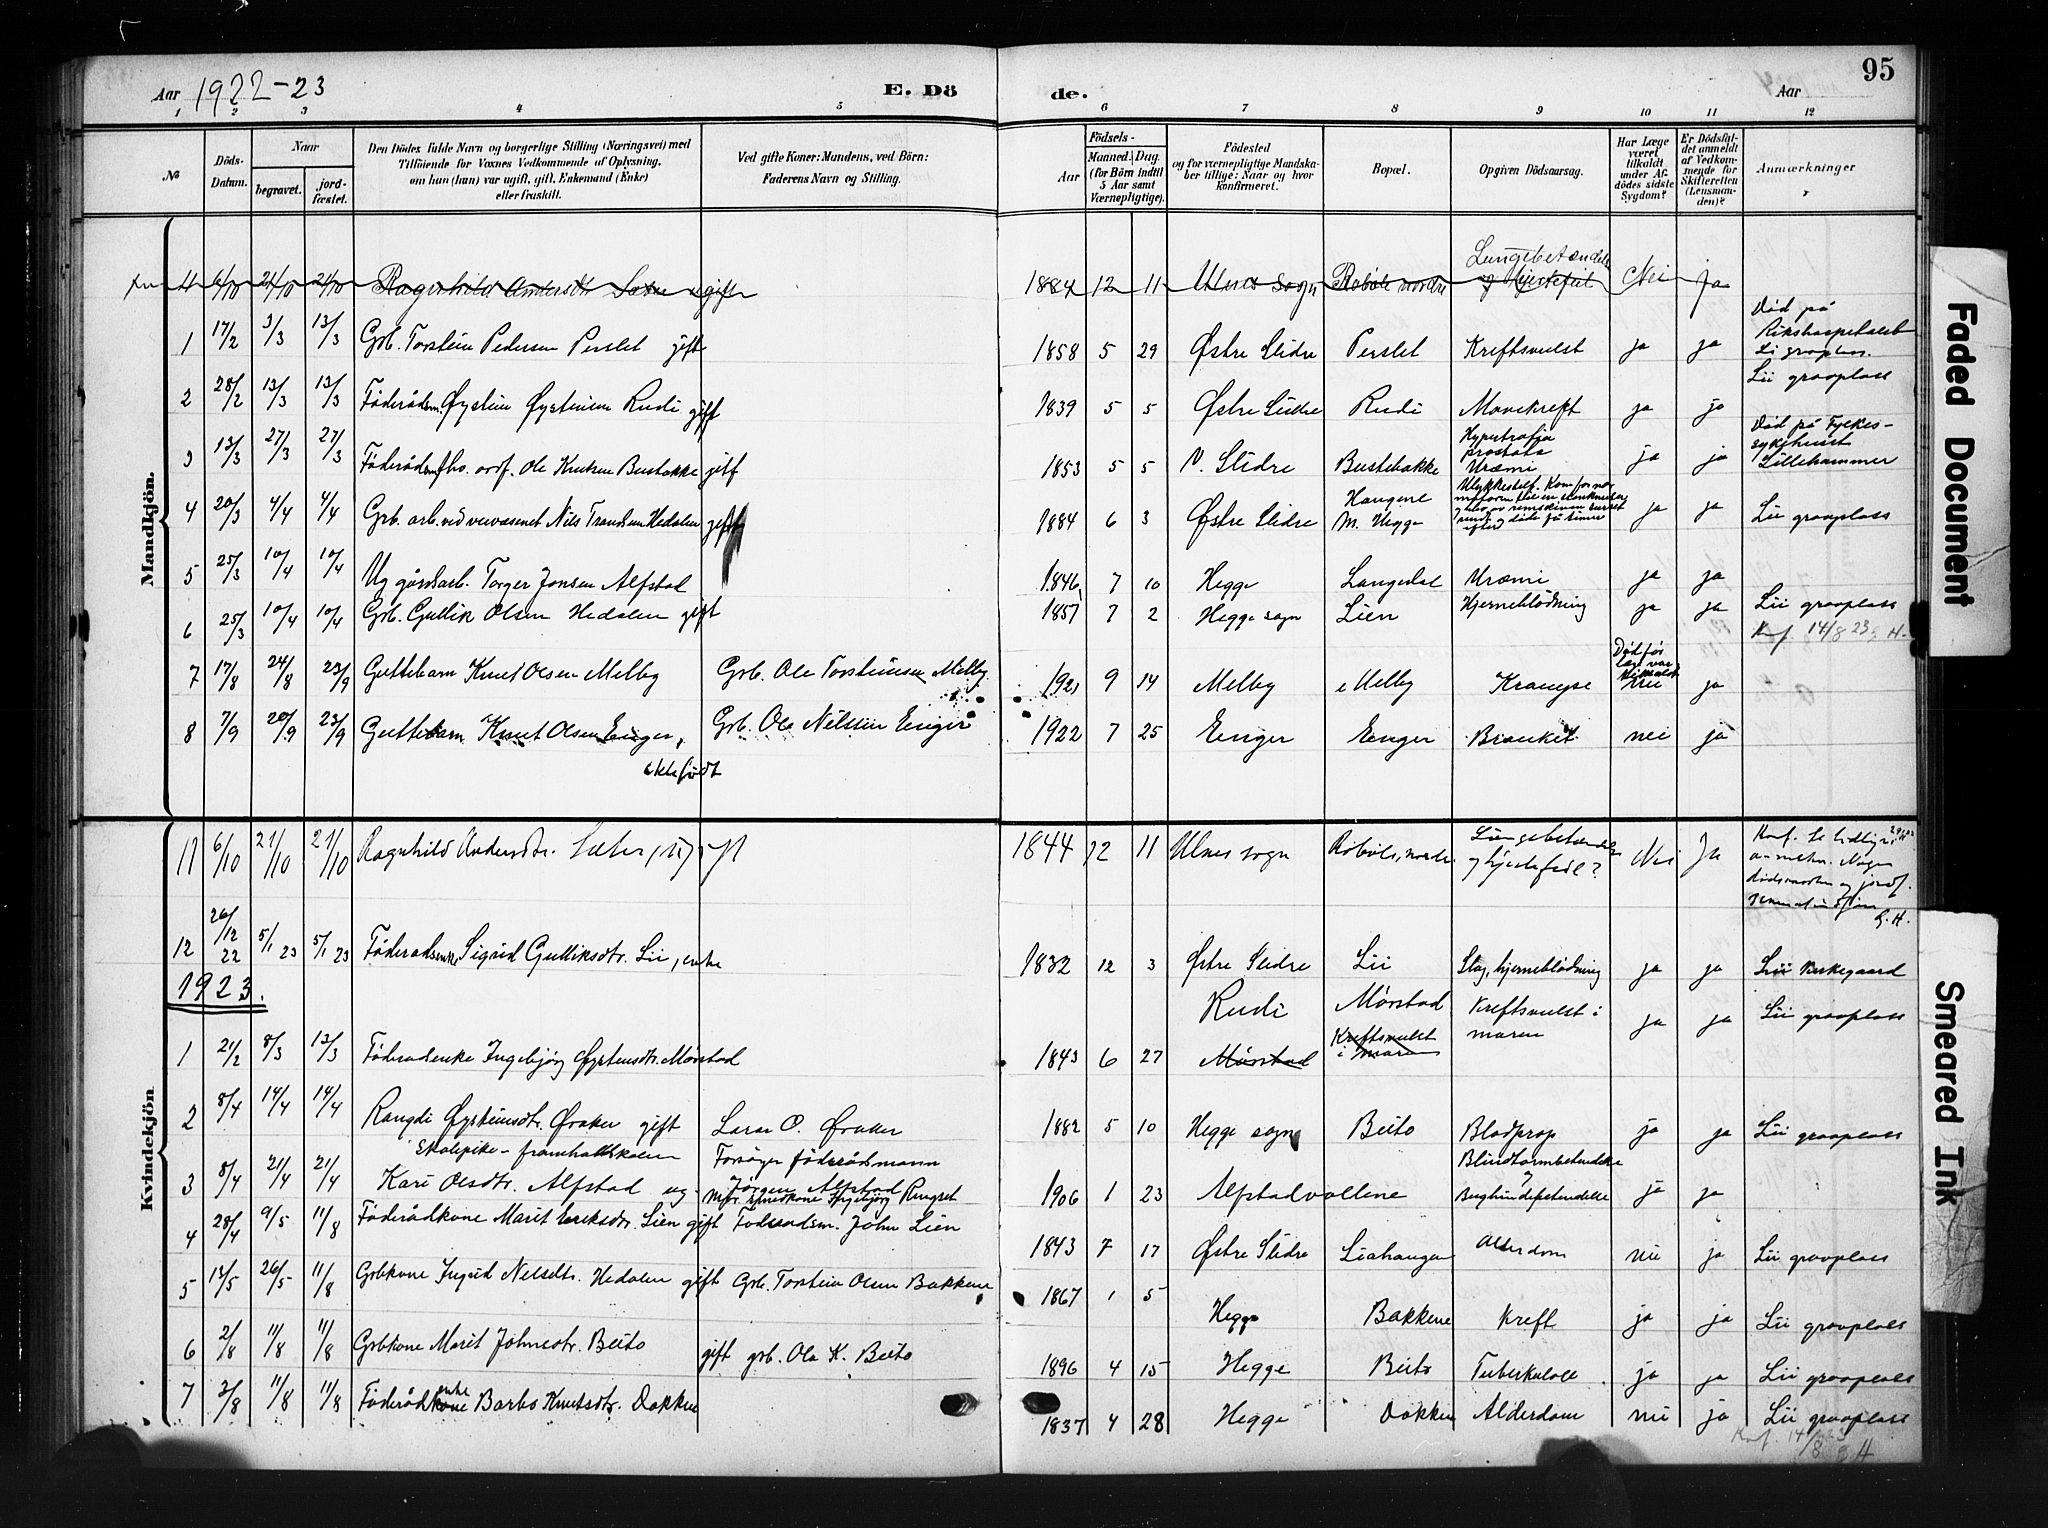 95
Aar 1922-23
E. Dö de.
Aar
1 2 3 4 5 6 7 8 9 10 11 12
№
Döds-Datum.
Naar
begravet.
jord-fæstet.
Den Dödes fulde Navn og borgerlige Stilling (Næringsvei) med
Tilföiende for Voxnes Vedkommende af Oplysning,
om han (hun) var ugift, gift, Enkemand (Enke)
eller fraskilt.
Ved gifte Koner: Mandens, ved Börn:
Faderens Navn og Stilling.
Födsels-
Aar
Maaned. Dag.
(for Börn indtil
5 Aar samt
Værnepligtige).
Födested
og for værnepligtige Mandska-
ber tillige: Naar og hvor
konfirmeret.
Bopæl.
Opgiven Dödsaarsag.
Har Læge
været
tilkaldt
under Af-
dödes sidste
Sygdom?
Er Dödsfal-
det anmeldt
af Vedkom-
mende for
Skifteretten
(Lensman-
den)?
Anmærkninger
Mandkjön.
11 6/10 21/10 21/10 Ragnhild Andersdtr. ugift 1884 12 11 Ulnes sogn Robøle nordre Lungebetændelse og Hjertefeil Nei Ja
1 17/2 3/3 13/3 Grb. Torstein Pedersen Perslet gift 1858 5 29 Østre Slidre Perslet Kreftsvulst ja ja Død på Rikshospitalet Lii gravplass.
2 28/2 13/3 13/3 Føderådsm. Øystein Øysteinsen Rudi gift 1839 5 5 Østre Slidre Rudi Mavekreft ja ja Lii gravplass
3 13/3 27/3 27/3 Føderådsm. fho. ordf. Ole Knutsen Bustebakke gift 1853 5 5 V. Slidre Bustebakke Hypertrofia prostata Uræmi ja ja Død på Fylkes-sykehuset Lillehammer
4 20/3 4/4 4/4 Grb. arb. ved veivæsenet Nils Trondsen Hedalen gift 1884 6 3 Østre Slidre Haugene m. Hegge Ulykkestilf. ja ja Lii gravplass
5 25/3 10/4 10/4 Ug gårdsarb. Torger Jonsen Alfstad 1846 7 10 Hegge Langedal Uræmi ja ja
6 25/3 10/4 10/4 Grb. Gullik Olsen Hedalen gift 1857 7 2 Hegge sogn Lien Hjerneblödning ja ja Lii gravplass
Knf. 14/8 23 H.
7 17/8 24/8 23/9 Guttebarn Knut Olsen Melby Grb. Ole Torsteinsen Melby 1921 9 14 Melby Melby Krampe Død før læge var nei ja
8 7/9 20/9 23/9 Guttebarn Knut Olsen Enger, ektefødt Grb. Ole Nilssen Enger 1922 7 25 Enger Enger Bronkit nei ja
Kvindekjön
11 6/10 21/10 21/10 Ragnhild Andersdtr. Sæter, ugift 1844 12 11 Ulnes sogn Robøle, nordre Lungebetændelse og hjertefeil? Nei Ja G. H.
12 26/12 22 5/1 23 5/1 23 Føderådsenke Sigrid Gulliksdtr. Lii, enke 1832 12 3 Østre Slidre Lii Slag, hjerneblödning ja ja Lii kirkegaard
1923.
1 21/2 8/3 13/3 Føderådenke Ingebjørg Øysteinsdtr. Mørstad 1843 6 27 Rudi Mørstad Mørstad Kreftsvulst i maven Kreftsvulst i maven ja ja Lii gravplass
2 8/4 14/4 14/4 Rangdi Øysteinsdtr. Øraker gift Lars O. Øraker 1882 5 10 Hegge sogn Beito Blodprop ja ja Lii gravplass
3 8/4 21/4 21/4 Skolepike – framhaldskolen Kari Olsdtr. Alfstad ug. Forsørger føderådsmann Jörgen Alfstad 1906 1 23 Alfstadvollene Blindtarmbetendelse og Bughindebetendelse ja ja
4 28/4 9/5 11/8 Føderådkone Marit Eriksdtr. Lien gift Føderådsm. John Lien 1843 7 17 Østre Slidre Liahaugen Alderdom nei ja Lii gravplass
5 13/5 26/5 11/8 Grbkone Ingrid Nilsdtr. Hedalen gift Grb. Torstein Olsen Bakkene 1867 1 5 Hegge Bakkene Kreft ja ja Lii gravplass
6 2/8 11/8 11/8 Grbkone Marit Johnsdtr. Beito gift grb. Ola K. Beito 1896 4 15 Hegge Beito Tuberkulose ja ja Lii gravplass
7 3/8 11/8 11/8 Føderådkone enke Barbo Knutsdtr. Dokken 1837 4 28 Hegge Dokken Alderdom nei ja Lii gravplass
Knf. 14/8 23 H
Faded Document
Smeared Ink